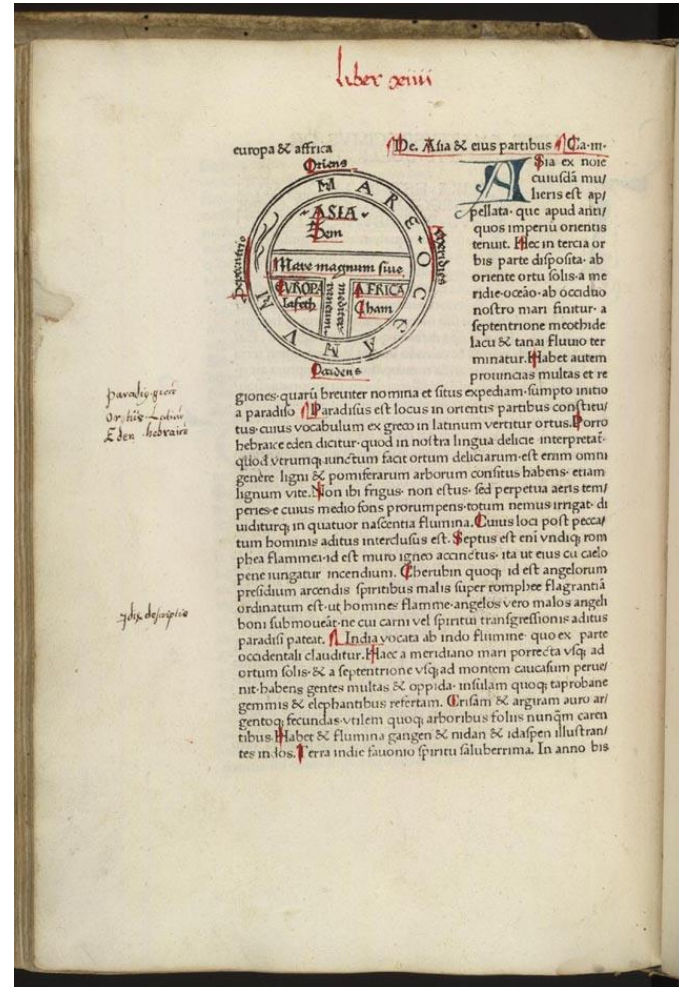 Liber xiiii
europa & affrica
De. Asia & eius partibus Ca·m·
Oriens
MARE OCEANUM
Septentrio
Meridies
ASIA
Sem
Mare magnum siue
mediterraneum
EVROPA
Iafeth
AFRICA
Cham
Occidens
ASia ex noīe
cuiusdā mu/
lieris est ap/
pellata· que apud anti/
quos imperiū orientis
tenuit. Hec in tercia or
bis parte disposita· ab
oriente ortu solis· a me
ridie·oceāo·ab occiduo
nostro mari finitur· a
septentrione meothide
lacu & tanai fluuio ter
minatur. Habet autem
prouincias multas et re
giones· quarū breuiter nomina et situs expediam· sumpto initio
a paradiso Paradisus est locus in orientis partibus constitu/
tus· cuius vocabulum ex greco in latinum vertitur ortus. Porro
hebraice eden dicitur· quod in nostra lingua delicie interpretat̄·
quod vtrumqʒ iunctum facit ortum deliciarum· est enim omni
genere ligni & pomiferarum arborum consitus habens· etiam
lignum vite. Non ibi frigus· non estus· sed perpetua aeris tem/
peries·e cuius medio fons prorumpens·totum nemus irrigat· di
uiditurqʒ in quatuor nascentia flumina. Cuius loci post pecca/
tum hominis aditus interclusus est. Septus est enī vndiqʒ rom
phea flammea·id est muro igneo accinctus· ita ut eius cū caelo
pene iungatur incendium. Cherubin quoqʒ id est angelorum
presidium arcendis spiritibus malis super romphee flagrantiā
ordinatum est·ut homines flamme·angelos vero malos angeli
boni submoueāt·ne cui carni vel spiritui transgressionis aditus
paradisi pateat. India vocata ab indo flumine· quo ex parte
occidentali clauditur. Haec a meridiano mari porrecta vsqʒ ad
ortum solis· & a septentrione vsqʒ ad montem caucasum perue/
nit· habens gentes multas & oppida· insulam quoqʒ taprobane
gemmis & elephantibus refertam. Crisam & argiram auro ar/
gentoqʒ fecundas·vtilem quoqʒ arboribus foliis nunq̄m caren
tibus. Habet & flumina gangen & nidan & idaspen illustran/
tes indos. Terra indie fauonio spiritu saluberrima. In anno bis
Eden hebraice
descriptio